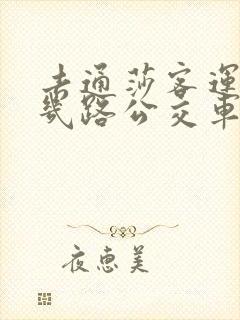 去通莎客運
幾路公交車
夜惠美